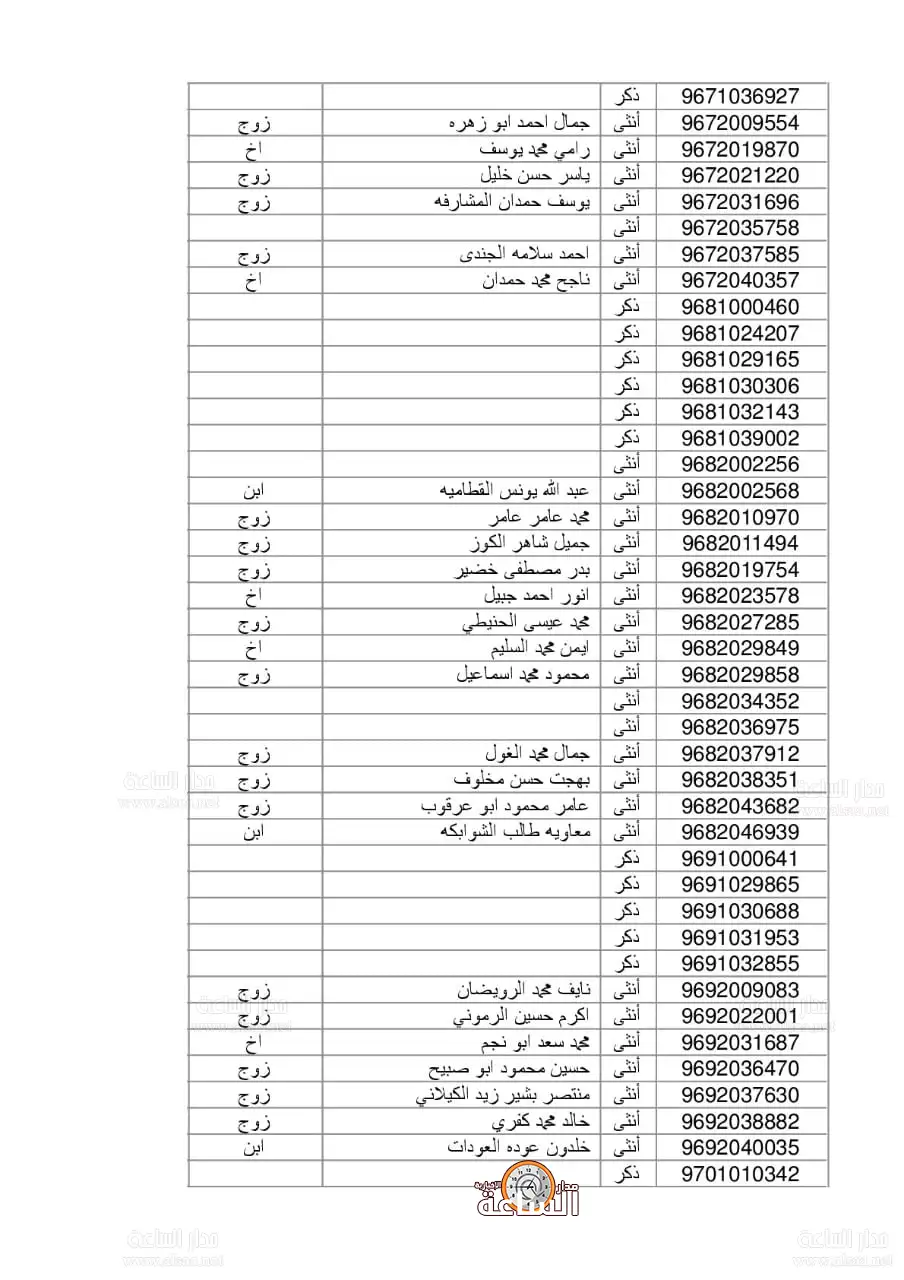 9671036927 ذكر
9672009554 أنثى جمال احمد ابو زهره زوج
9672019870 أنثى رامي محمد يوسف اخ
9672021220 أنثى ياسر حسن خليل زوج
9672031696 أنثى يوسف حمدان المشارفه زوج
9672035758 أنثى
9672037585 أنثى احمد سلامه الجندى زوج
9672040357 أنثى ناجح محمد حمدان اخ
9681000460 ذكر
9681024207 ذكر
9681029165 ذكر
9681030306 ذكر
9681032143 ذكر
9681039002 ذكر
9682002256 أنثى
9682002568 أنثى عبد الله يونس القطاميه ابن
9682010970 أنثى محمد عامر عامر زوج
9682011494 أنثى جميل شاهر الكوز زوج
9682019754 أنثى بدر مصطفى خضير زوج
9682023578 أنثى انور احمد جبيل اخ
9682027285 أنثى محمد عيسى الحنيطي زوج
9682029849 أنثى ايمن محمد السليم اخ
9682029858 أنثى محمود محمد اسماعيل زوج
9682034352 أنثى
9682036975 أنثى
9682037912 أنثى جمال محمد الغول زوج
9682038351 أنثى بهجت حسن مخلوف زوج
9682043682 أنثى عامر محمود ابو عرقوب زوج
9682046939 أنثى معاويه طالب الشوابكه ابن
9691000641 ذكر
9691029865 ذكر
9691030688 ذكر
9691031953 ذكر
9691032855 ذكر
9692009083 أنثى نايف محمد الرويضان زوج
9692022001 أنثى اكرم حسين الرموني زوج
9692031687 أنثى محمد سعد ابو نجم اخ
9692036470 أنثى حسين محمود ابو صبيح زوج
9692037630 أنثى منتصر بشير زيد الكيلاني زوج
9692038882 أنثى خالد محمد كفري زوج
9692040035 أنثى خلدون عوده العودات ابن
9701010342 ذكر
مدار الساعة الإخبارية
مدار الساعة
www.alsaa.net
مدار الساعة
www.alsaa.net